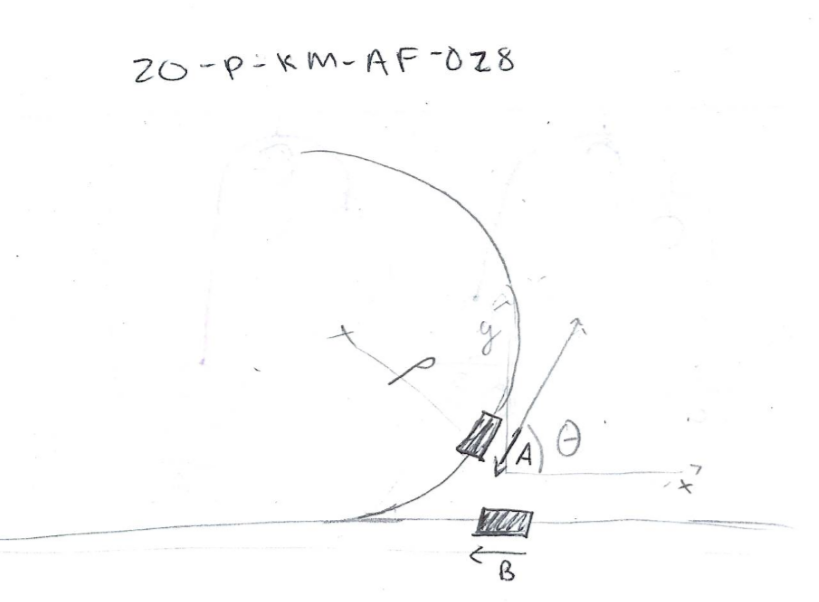 20-P-KM-AF-028
y
ρ
A θ
x
B